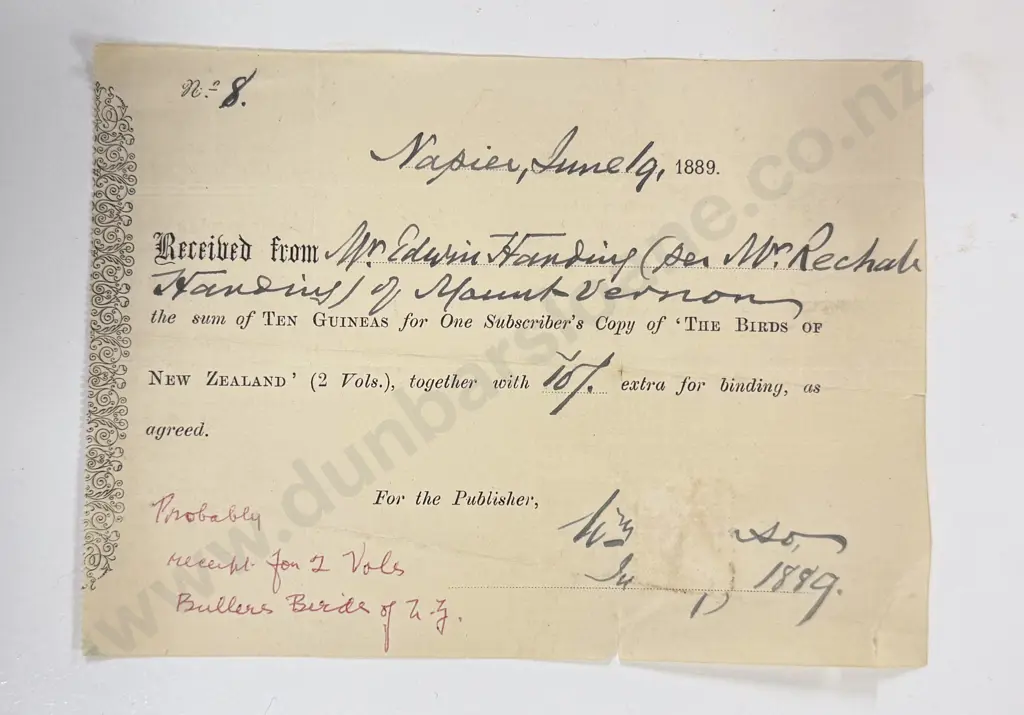 No 8.
Napier, June 19, 1889.
Received from Mr. Edwin Harding (per Mr. Rechab
Harding) of Mount Vernon
the sum of TEN GUINEAS for One Subscriber's Copy of 'THE BIRDS OF
NEW ZEALAND' (2 Vols.), together with 10/. extra for binding, as
agreed.
For the Publisher,
1889.
Probably
receipt for 2 Vols
Bullers Birds of N.Z.
www.dunbarsloane.co.nz